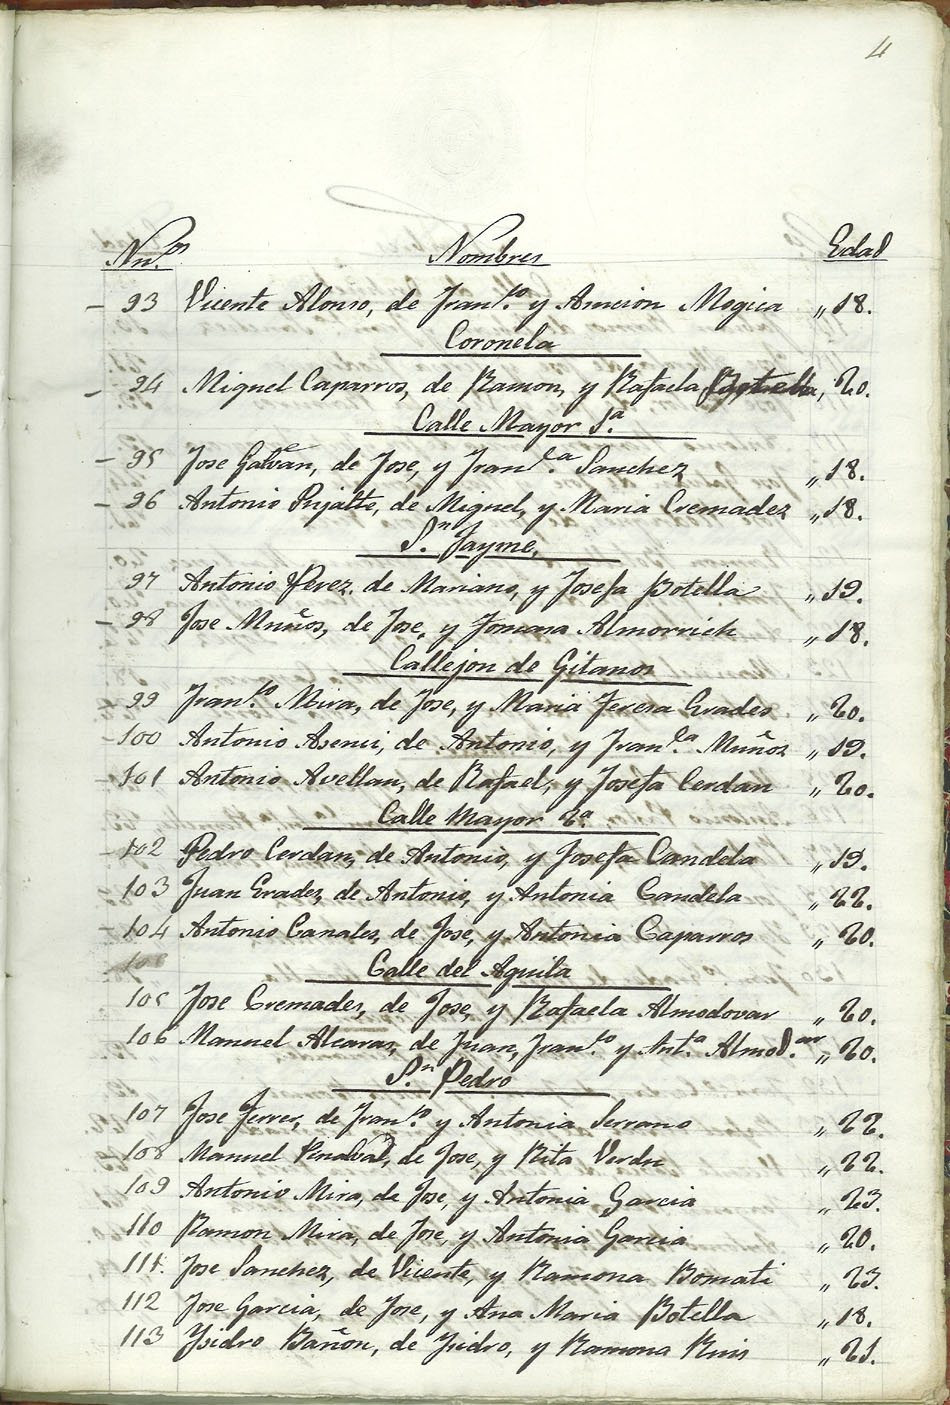 4
Nu.os Nombres Edad
– 93 Vicente Alonso, de Fran.co y Asuncion Mogica „ 18.
Coronela
– 94 Miguel Caparros, de Ramon, y Rafaela Botella, 20.
Calle Mayor 1.a
– 95 Jose Galvañ, de Jose, y Fran.ca Sanchez „ 18.
– 96 Antonio Pujalte, de Miguel, y Maria Cremadez „ 18.
S.n Jayme.
97 Antonio Perez, de Mariano, y Josefa Botella „ 19.
– 98 Jose Muños, de Jose, y Tomasa Almorrich „ 18.
Callejon de Gitanos
99 Fran.co Mira, de Jose, y Maria Teresa Grades „ 20.
– 100 Antonio Asenci, de Antonio, y Fran.ca Muñoz „ 19.
– 101 Antonio Avellan, de Rafael, y Josefa Cerdan „ 20.
Calle Mayor 2.a
– 102 Pedro Cerdan, de Antonio, y Josefa Candela „ 19.
– 103 Juan Grades, de Antonio, y Antonia Candela „ 22.
– 104 Antonio Canales, de Jose, y Antonia Caparros „ 20.
Calle del Aguila
105 Jose Cremades, de Jose, y Rafaela Almodovar „ 20.
106 Manuel Alcaras, de Juan, Fran.co y Ant.a Almod.ar „ 20.
S.n Pedro
107 Jose Ferrer, de Fran.co y Antonia Serrano „ 22.
108 Manuel Penalva, de Jose, y Rita Verdu „ 22.
109 Antonio Mira, de Jose, y Antonia Garcia „ 23.
110 Ramon Mira, de Jose, y Antonia Garcia „ 20.
111. Jose Sanchez, de Vicente, y Ramona Bomati „ 23.
112 Jose Garcia, de Jose, y Ana Maria Botella „ 18.
113 Ysidro Bañon, de Ysidro, y Ramona Ruis „ 21.